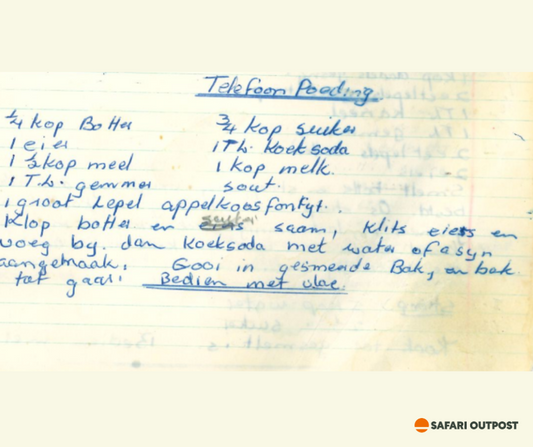 Telefoon Poeding
1/4 kop Botter 3/4 kop suiker
1 eier 1 Th. Koeksoda
1 1/2 kop meel 1 kop melk.
1 Th. gemmer sout.
1 groot Lepel appelkoosfontyt.
Klop botter en suiker saam, Klits eiers en
voeg by. dan Koeksoda met water of asyn
aangemaak. Gooi in gesmeerde Bak, en bak
tot gaar. Bedien met vlae.
SAFARI OUTPOST